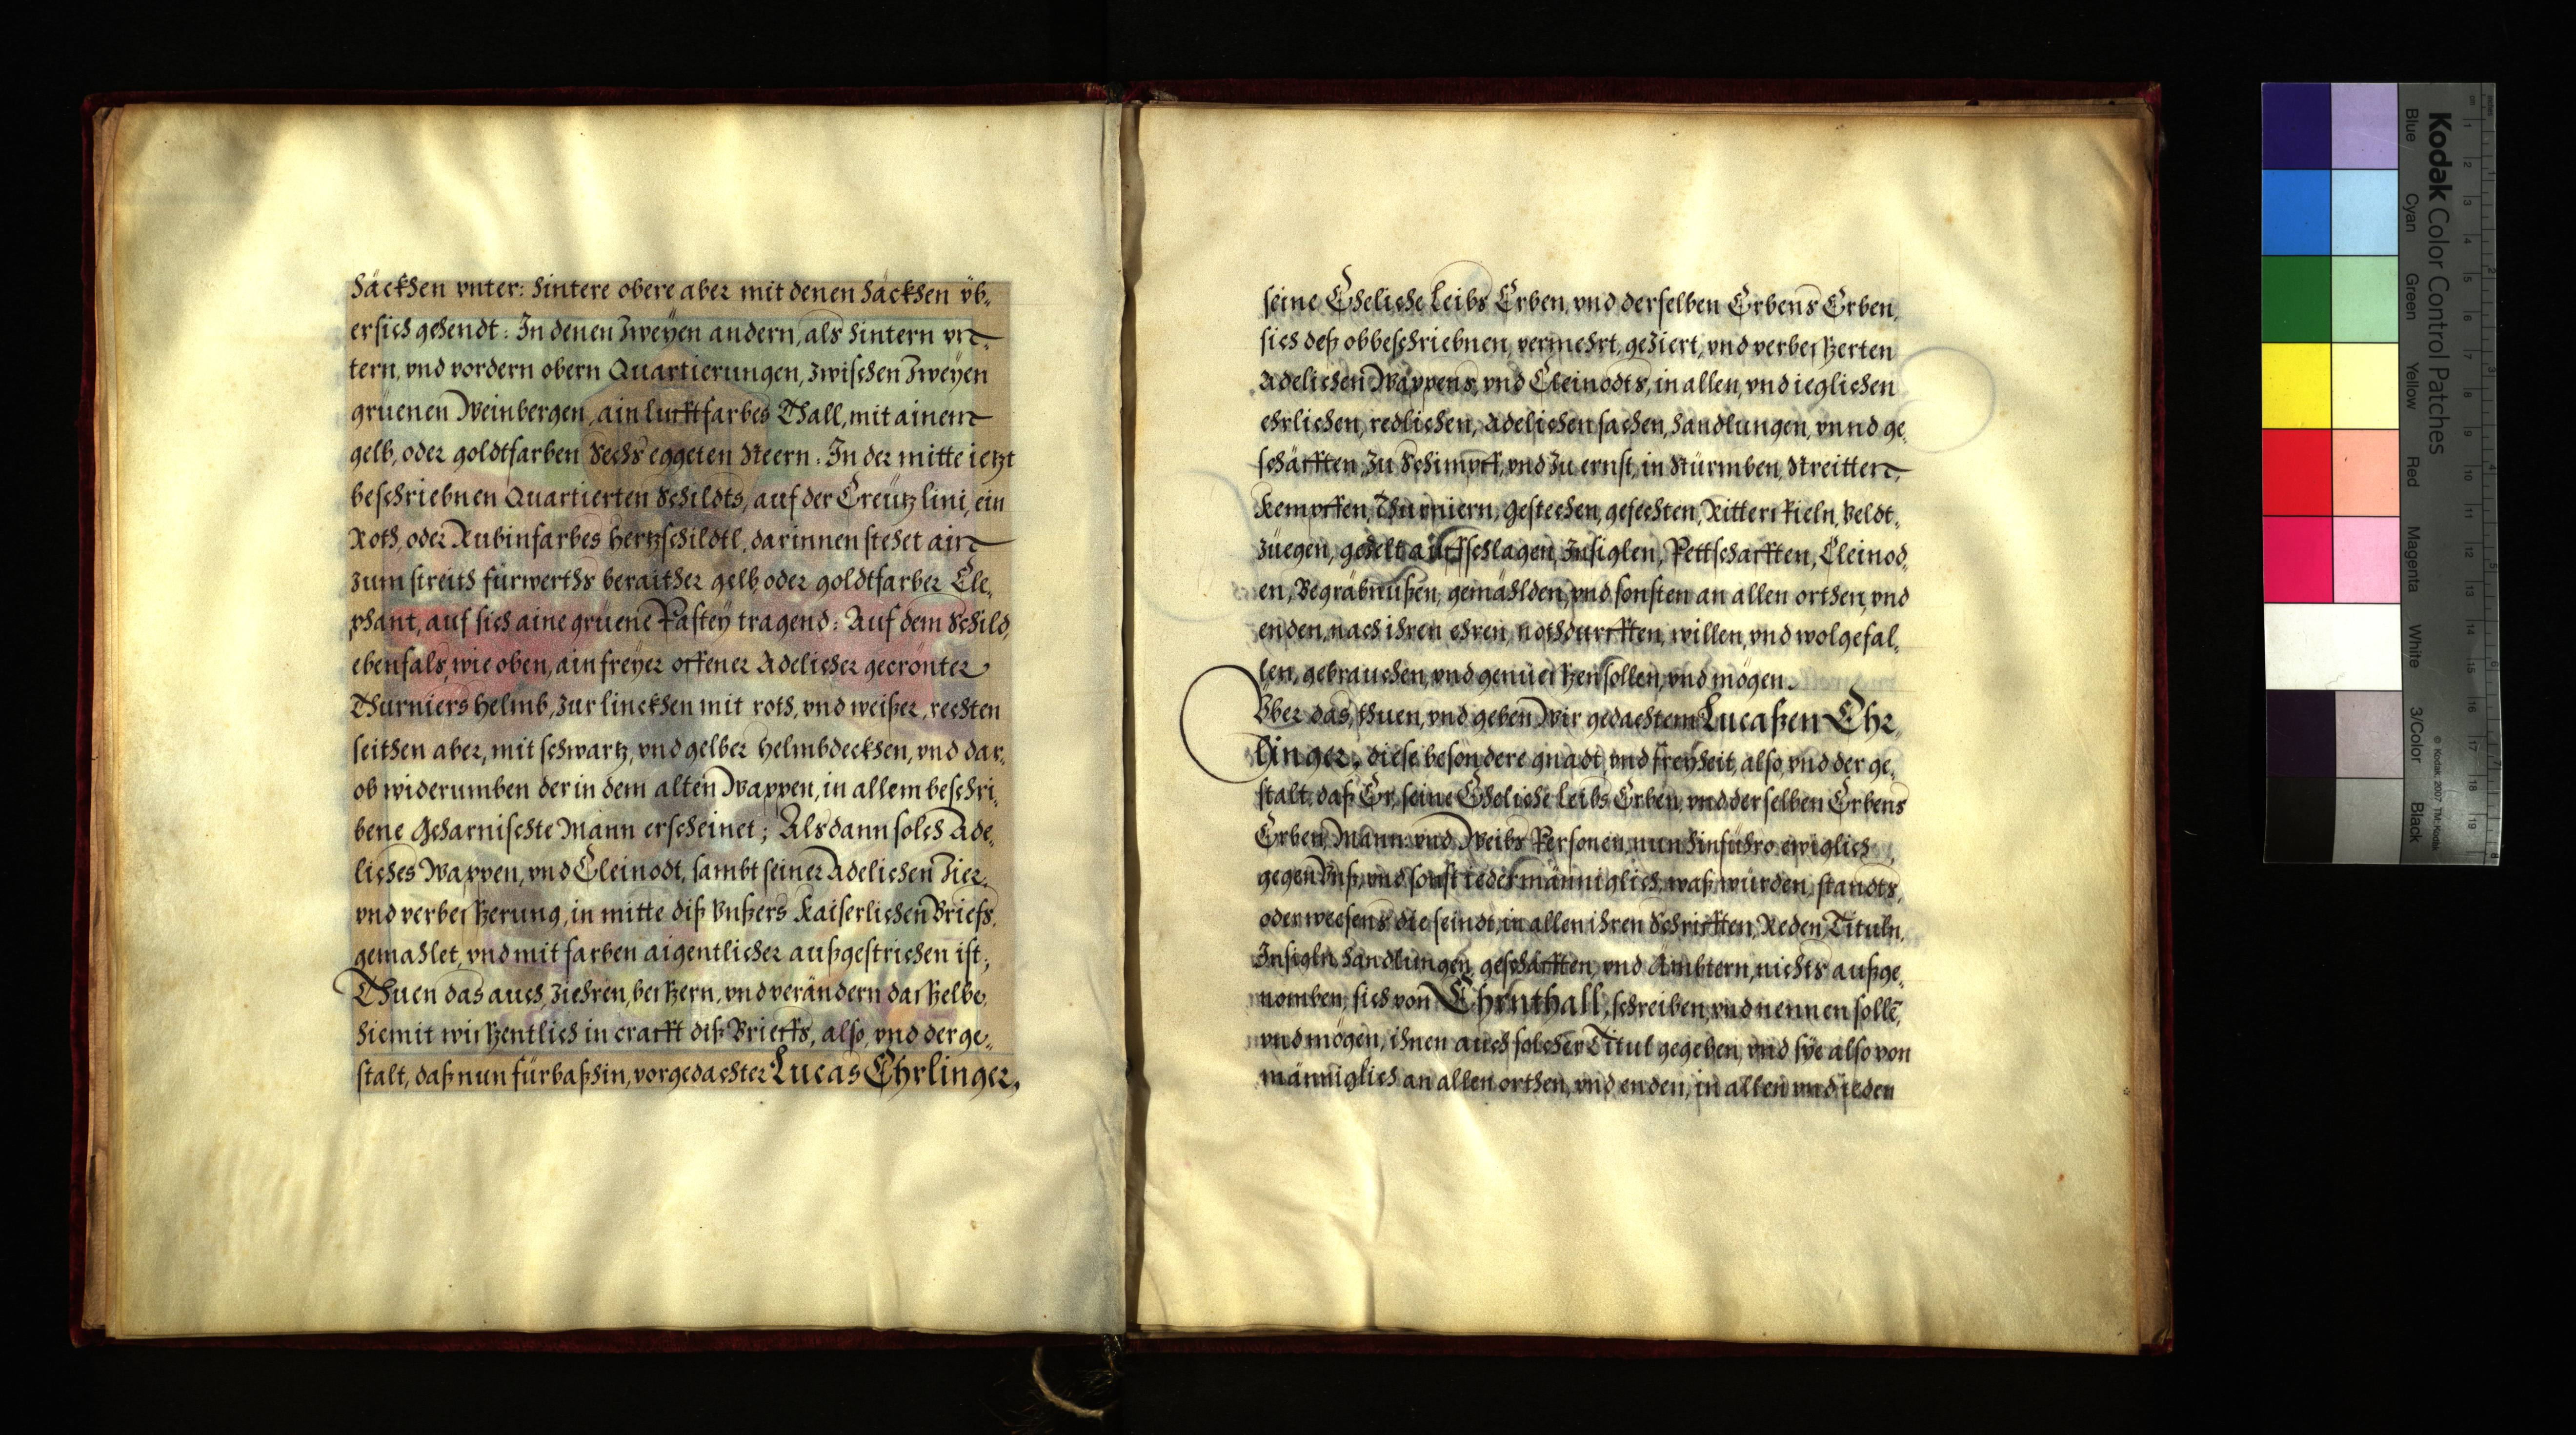 häckhen vnter: hintere obere aber mit denen häckhen üb„
ersich gehendt: In denen zweyen andern, als hintern vn„
tern, vnd vordern obern Quartierungen, zwischen zweyen
grüenen Weinbergen, ain lufftfarbes Thall, mit ainem
gelb, oder goldtfarben Sechs eggeten Steern: In der mitte ietzt
beschriebnen Quartierten Schildts, auf der Creützlini, ein
Roth, oder Rubinfarbes hertzschildtl, darinnen stehet ain
zum streith fürwerths beraither gelb, oder goldtfarber Ele„
phant, auf sich aine grüene Pastey tragend: Auf dem Schild,
ebenfals, wie oben, ain freyer offener Adelicher gecrönter
Thurniers helmb, zur linckhen mit roth, vnd weißer, rechten
seithen aber, mit schwartz, vnd gelber helmbdeckhen, vnd dar„
ob widerumben der in dem alten Wappen, in allem beschri„
bene Geharnischte Mann erscheinet; Alsdann solch Ade„
liches Wappen, vnd Cleinodt, sambt seiner Adelichen Zier,
vnd verbeßerung, in mitte diß Vnßers Kaiserlichen Briefs,
gemahlet, vnd mit farben aigentlicher außgestrichen ist;
Thuen das auch, ziehren, beßern, vnd verändern daßelbe
hiemit wißentlich in crafft diß Brieffs, also, vnd der ge„
stalt, daß nun fürbaßhin, vorgedachter Lucas Ehrlinger,
seine Eheliche Leibs Erben, vnd derselben Erbens Erben,
sich deß obbeschriebnen, vermehrt, geziert, vnd verbeßerten
Adelichen Wappens, vnd Cleinodts, in allen, vnd ieglichen
ehrlichen, redlichen, Adelichen sachen, handlungen, vnnd ge„
schäfften, zu Schimpff, vnd zu ernst, in Stürmben, Streitten,
Kempffen, Thurniern, gestechen, gefechten, Ritterspieln, Veldt„
züegen, gezelt aufschlagen, Insiglen, Pettschafften, Cleinod„
en, Begräbnußen, gemählden, vnd sonsten an allen orthen, vnd
enden, nach ihren ehren, nothdurfften, willen, vnd wolgefal„
len, gebrauchen, vnd genüeßen sollen, vnd mögen.
Vber das, thuen, vnd geben Wir gedachtem Lucaßen Ehr„
linger, diese besondere gnadt, vnd freyheit, also, vnd der ge„
stalt, daß Er, seine Eheliche Leibs Erben, vnd derselben Erbens
Erben, Mann: vnd Weibs Personen, nun hinfüehro ewiglich
gegen Vnß, vnd sonst iedermänniglich, waß würden, standts,
oder weesens die seindt, in allen ihren Schrifften, Reden, Tituln,
Insigln, handlungen, geschäfften, vnd Ämbtern, nichts außge„
nomben, sich von Ehrnthall, schreiben, vnd nennen solle͂,
vnd mögen, ihnen auch solcher Titul gegeben, vnd sÿe also von
männiglich an allen orthen, vnd enden, in allen vnd ieden